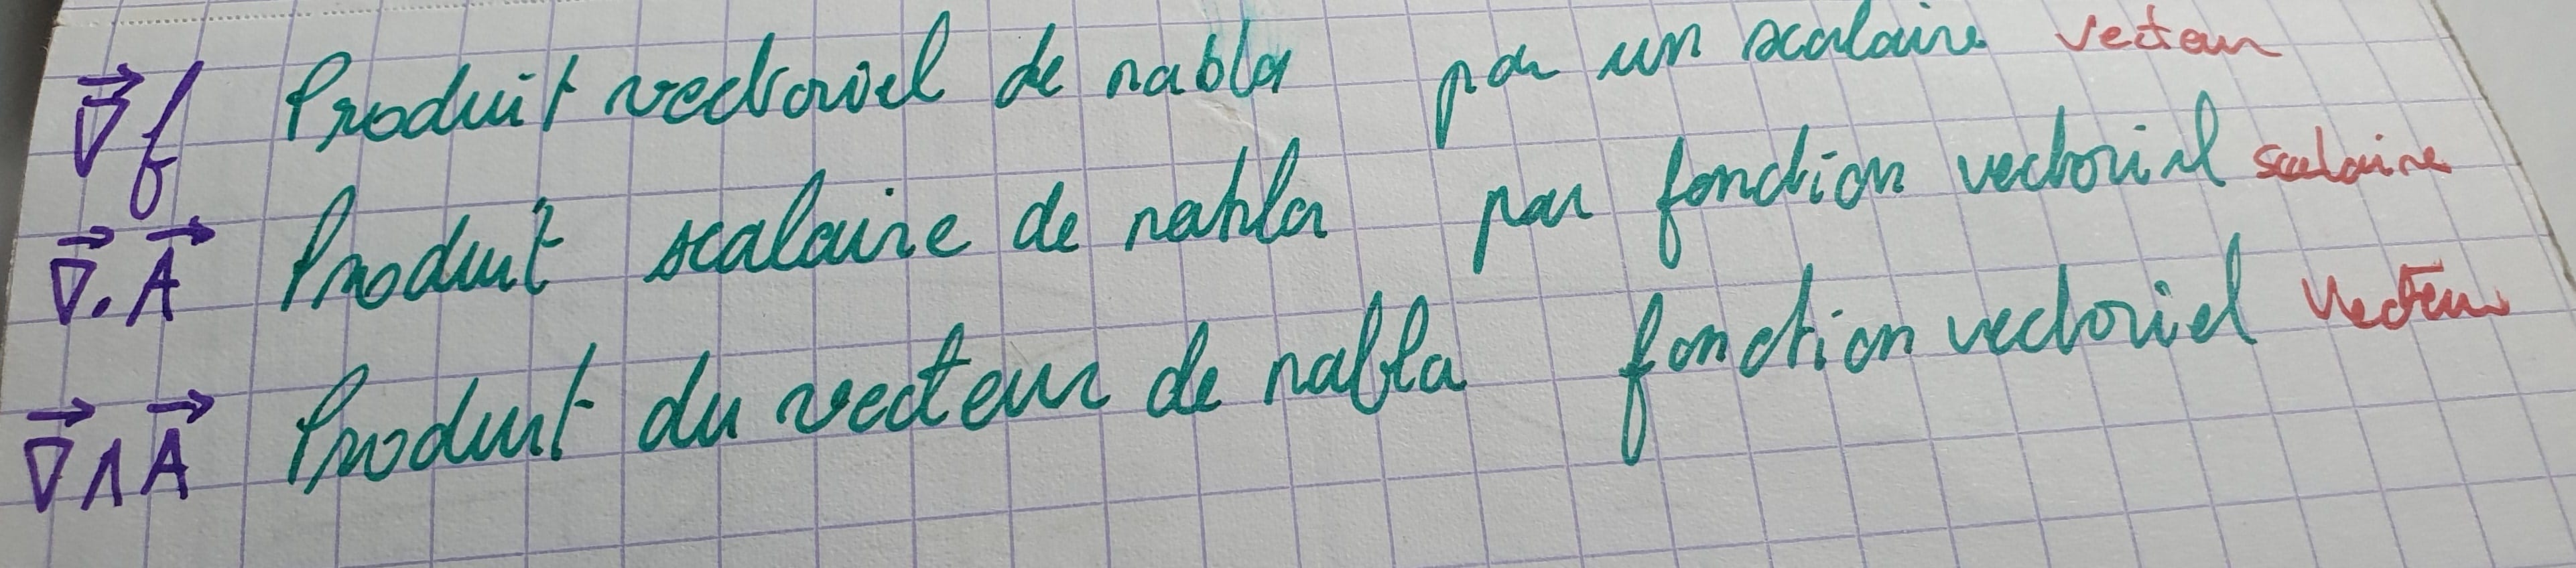 ∇⃗f Produit vectoriel de nabla par un scalaire vecteur
∇⃗.A⃗ Produit scalaire de nabla par fonction vectoriel scalaire
∇⃗∧A⃗ Produit du vecteur de nabla fonction vectoriel vecteur